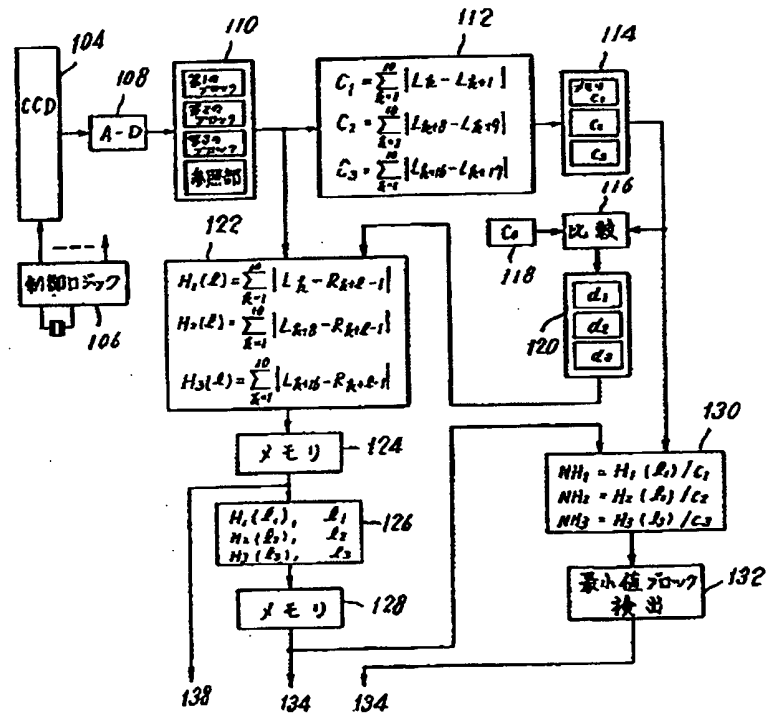 104
CCD
108
A-D
110
第1のブロック
第2のブロック
第3のブロック
参照部
112
C₁ = Σ(k=1→10) |Lk − Lk+1|
C₂ = Σ(k=1→10) |Lk+8 − Lk+9|
C₃ = Σ(k=1→10) |Lk+16 − Lk+17|
114
メモリ C₁
C₂
C₃
116
比較
C₀
118
120
d₁
d₂
d₃
制御ロジック
106
122
H₁(l) = Σ(k=1→10) |Lk − Rk+l−1|
H₂(l) = Σ(k=1→10) |Lk+8 − Rk+l−1|
H₃(l) = Σ(k=1→10) |Lk+16 − Rk+l−1|
メモリ
124
H₁(l₁), l₁
H₂(l₂), l₂
H₃(l₃), l₃
126
メモリ
128
130
NH₁ = H₁(l₁)/C₁
NH₂ = H₂(l₂)/C₂
NH₃ = H₃(l₃)/C₃
最小値ブロック
検出
132
138
134
134